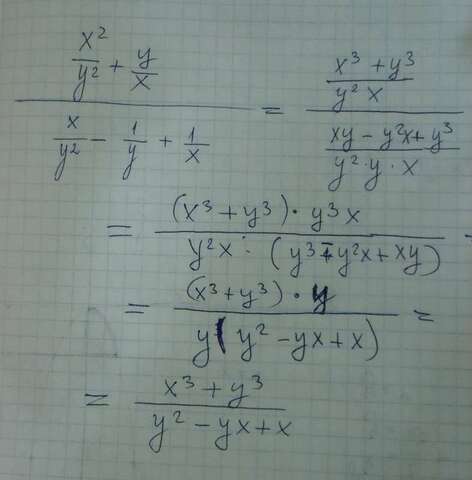 x²/y² + y/x / x/y² - 1/y + 1/x = x³ + y³ / y² x / xy - y²x + y³ / y² · y · x
= (x³ + y³) · y³ x / y² x · (y³ - y²x + xy)
= (x³ + y³) · y / y ( y² - yx + x) =
= x³ + y³ / y² - yx + x